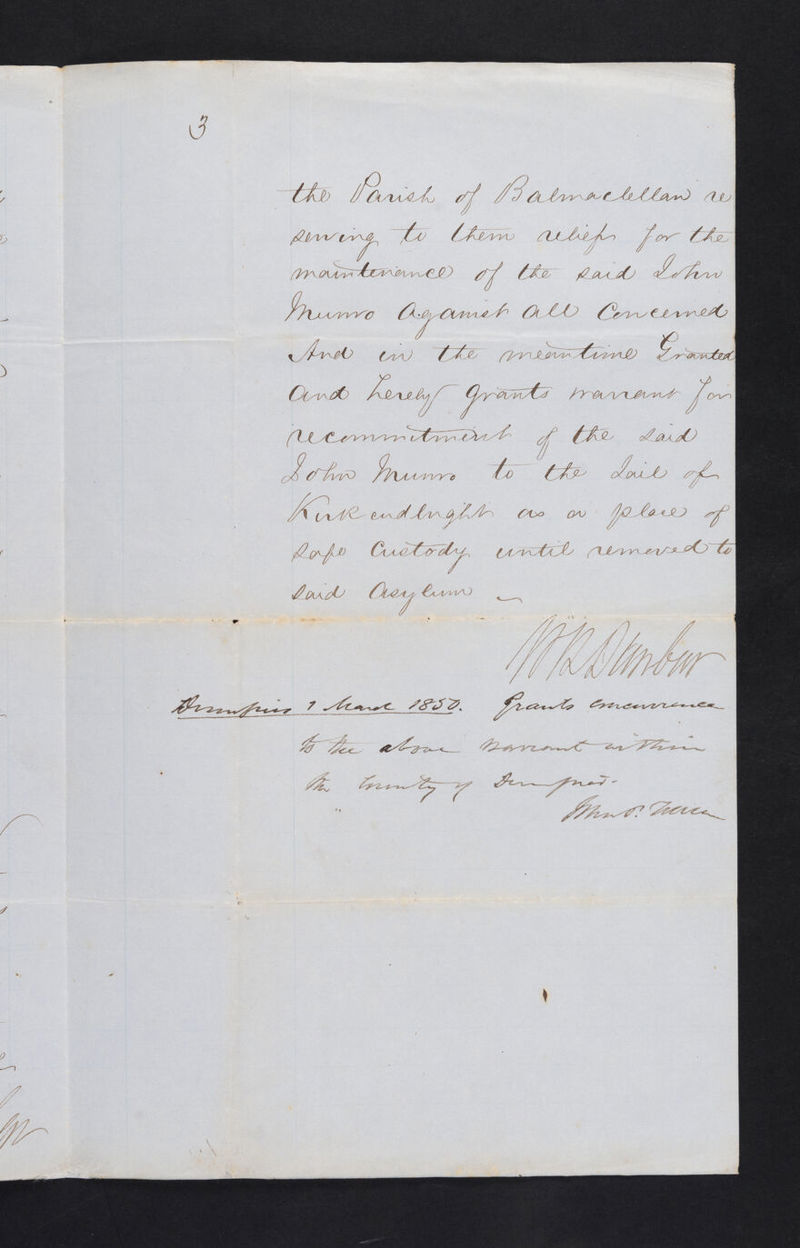 3
the Parish of Balmaclellan re
serving to them relief for the
maintenance of the said John
Munro against all Concerned
And in the meantime Granted
and hereby grants warrant for
recommitment of the said
John Munro to the Jail of
Kirkcudbright as a place of
safe Custody until removed to
said Asylum
W R Dunbar
Dumfries 7 March 1850. Grants concurrence
to the above warrant within
the County of Dumfries.